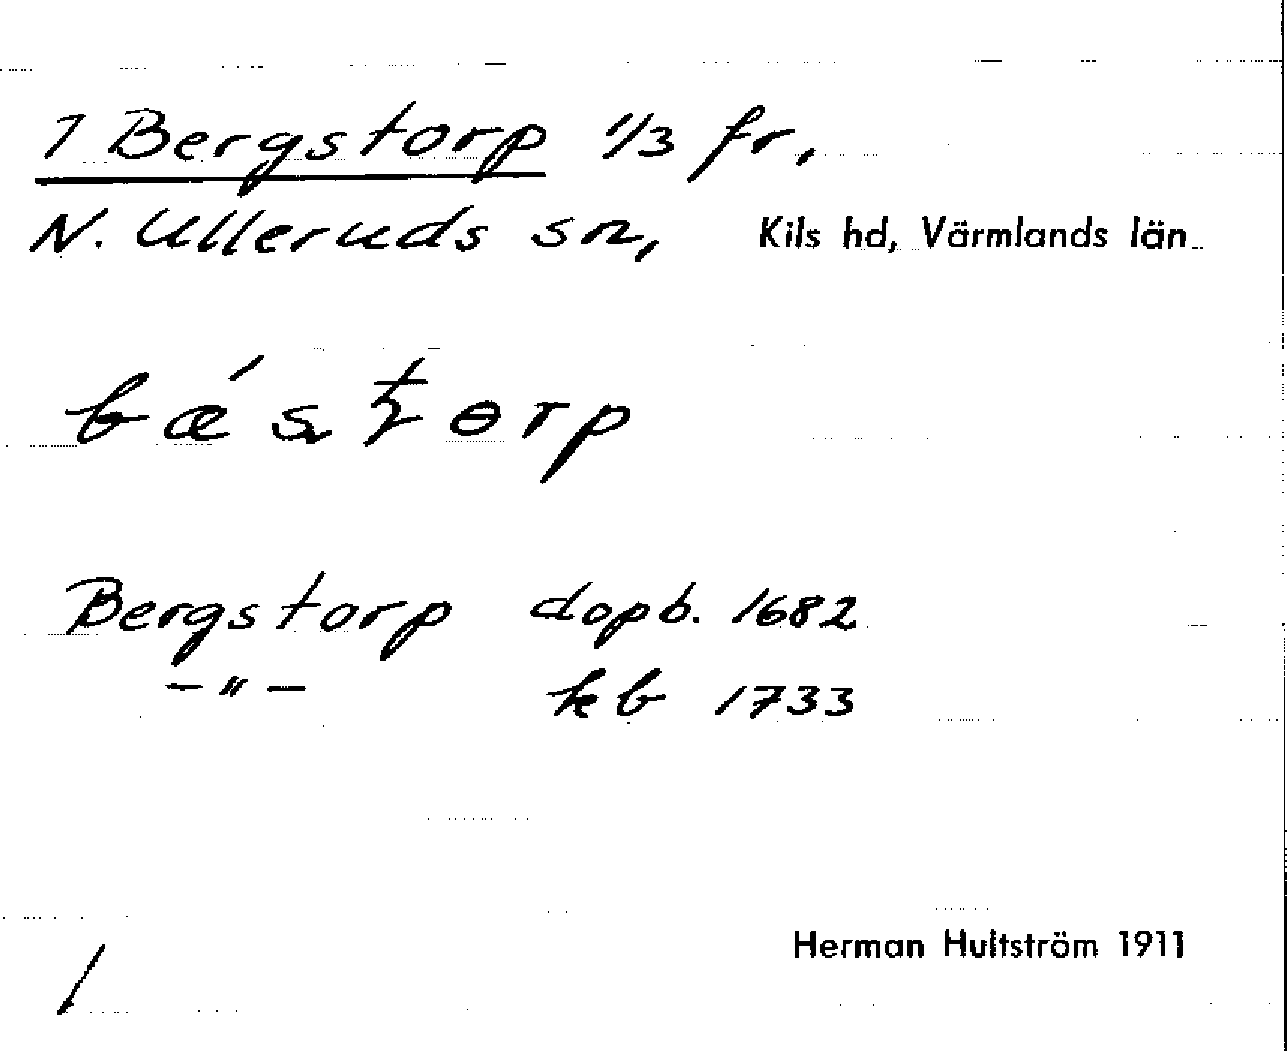 1 Bergstorp 1/3 fr,
N. Ulleruds sn, Kils hd, Värmlands län
Bergstorp dopb. 1682
-"- kb 1733
Herman Hultström 1911